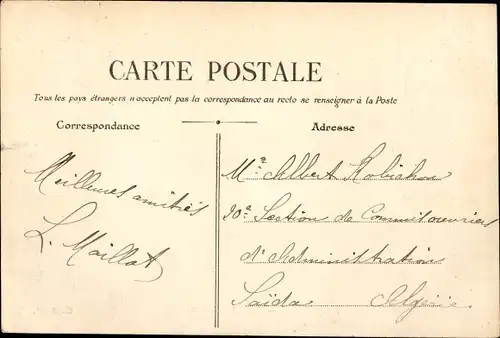 CARTE POSTALE
Tous les pays étrangers n'acceptent pas la correspondance au recto se renseigner à la Poste
Correspondance
Adresse
Meilleures amitiés
L. Maillat
Mr Albert Robichon
20e Section de Commis ouvriers
d'Administration
Saïda Algérie